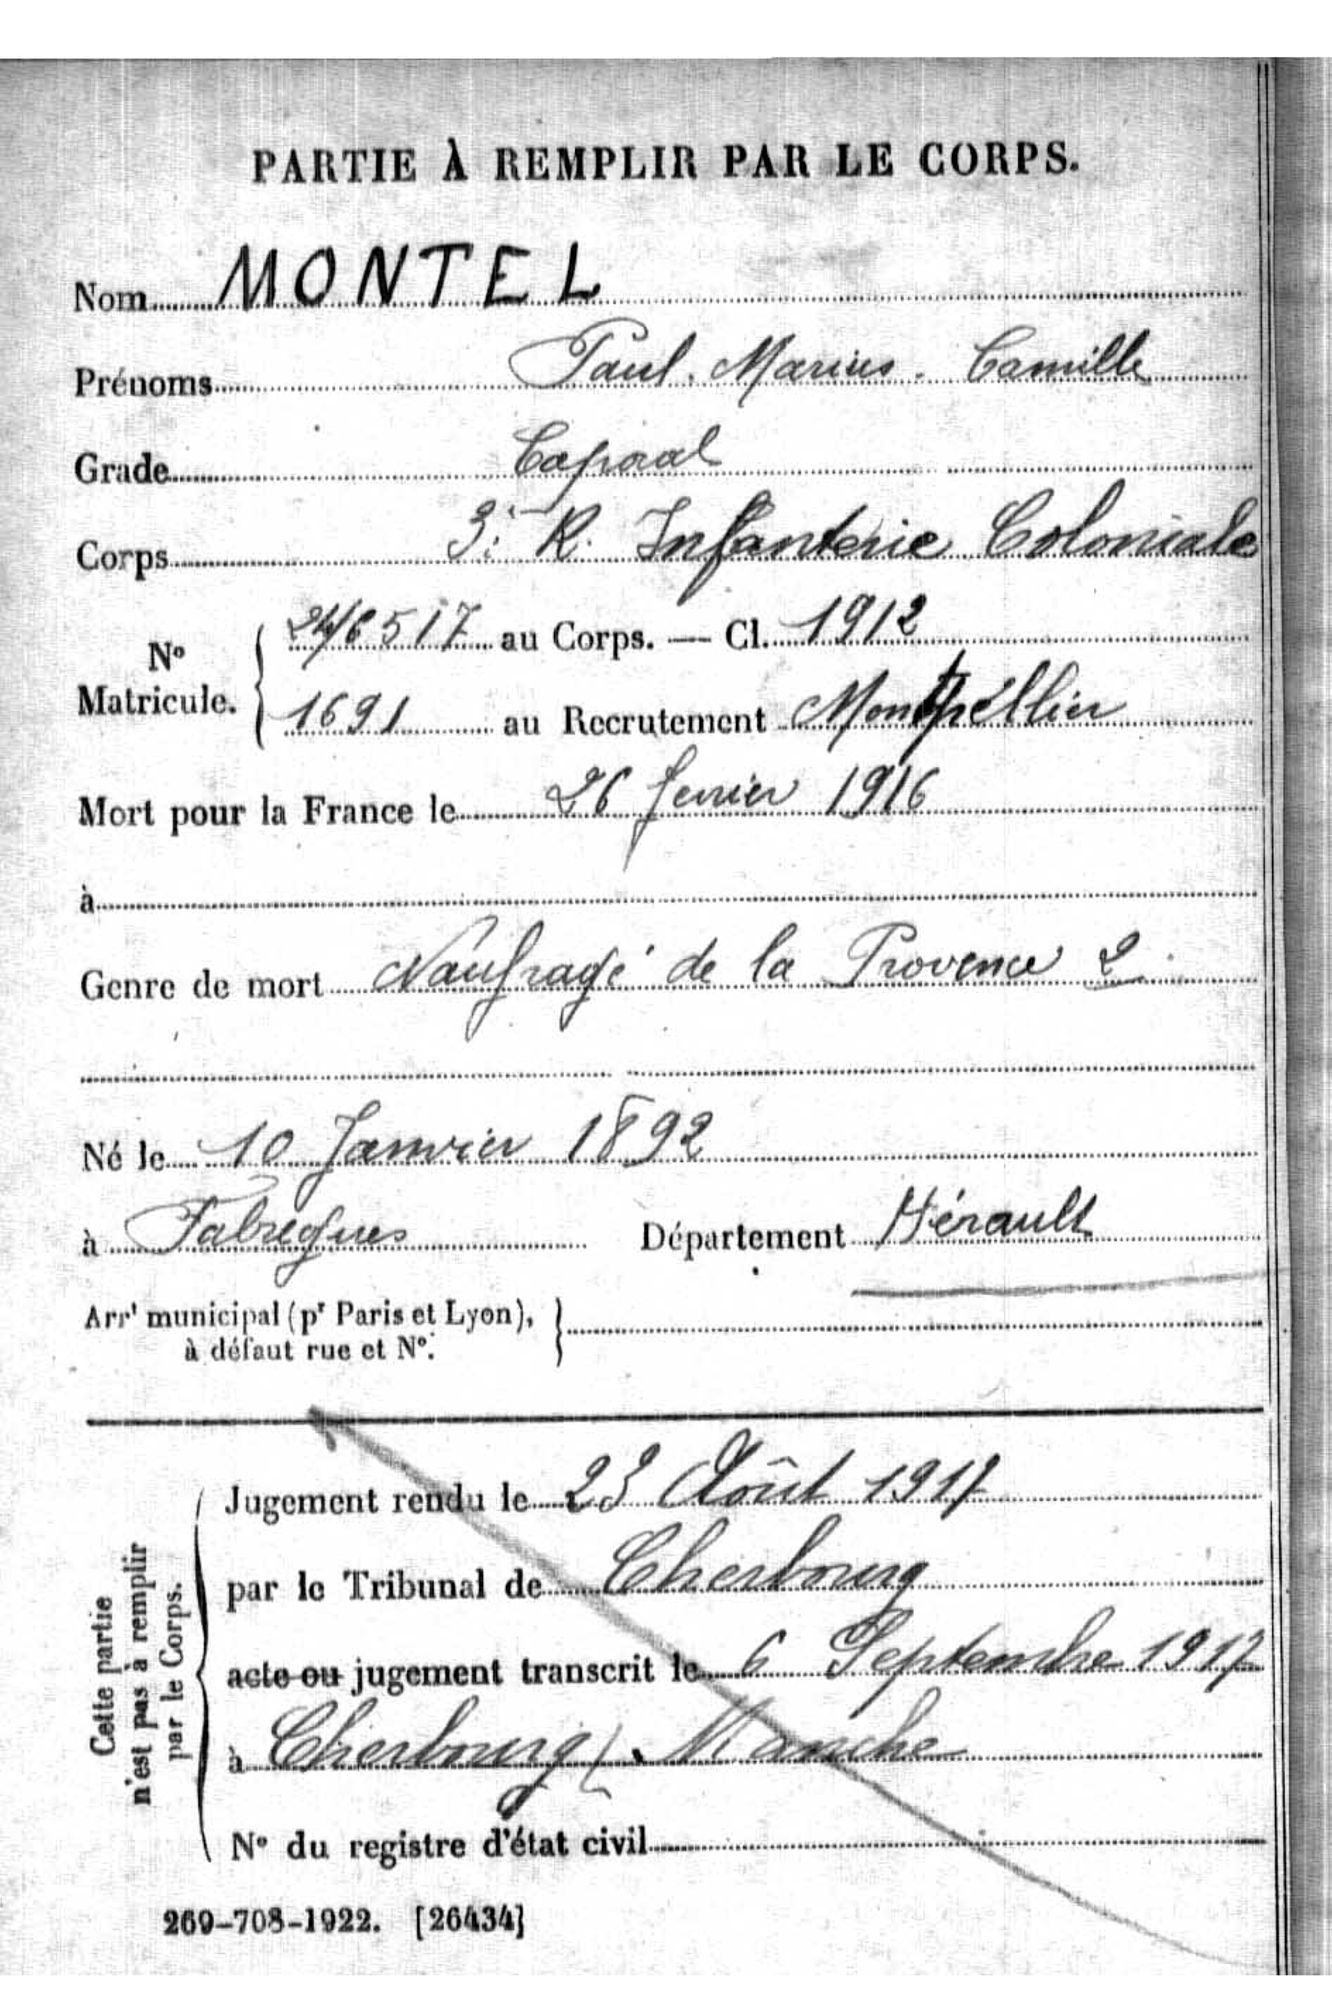 PARTIE À REMPLIR PAR LE CORPS.
Nom MONTEL
Prénoms Paul. Marius. Camille
Grade Caporal
Corps 3e R. Infanterie Coloniale
No Matricule. { 24/6517 au Corps. — Cl. 1912
1691 au Recrutement Montpellier
Mort pour la France le 26 fevrier 1916
à
Genre de mort Naufragé de la Provence 2
Né le 10 Janvier 1892
à Fabrègues Département Hérault
Arrt municipal (pr Paris et Lyon), }
à défaut rue et No.
Cette partie
n'est pas à remplir
par le Corps.
Jugement rendu le 23 Août 1917
par le Tribunal de Cherbourg
acte ou jugement transcrit le 6 Septembre 1917
à Cherbourg (Manche
No du registre d'état civil
269-708-1922. [26434]